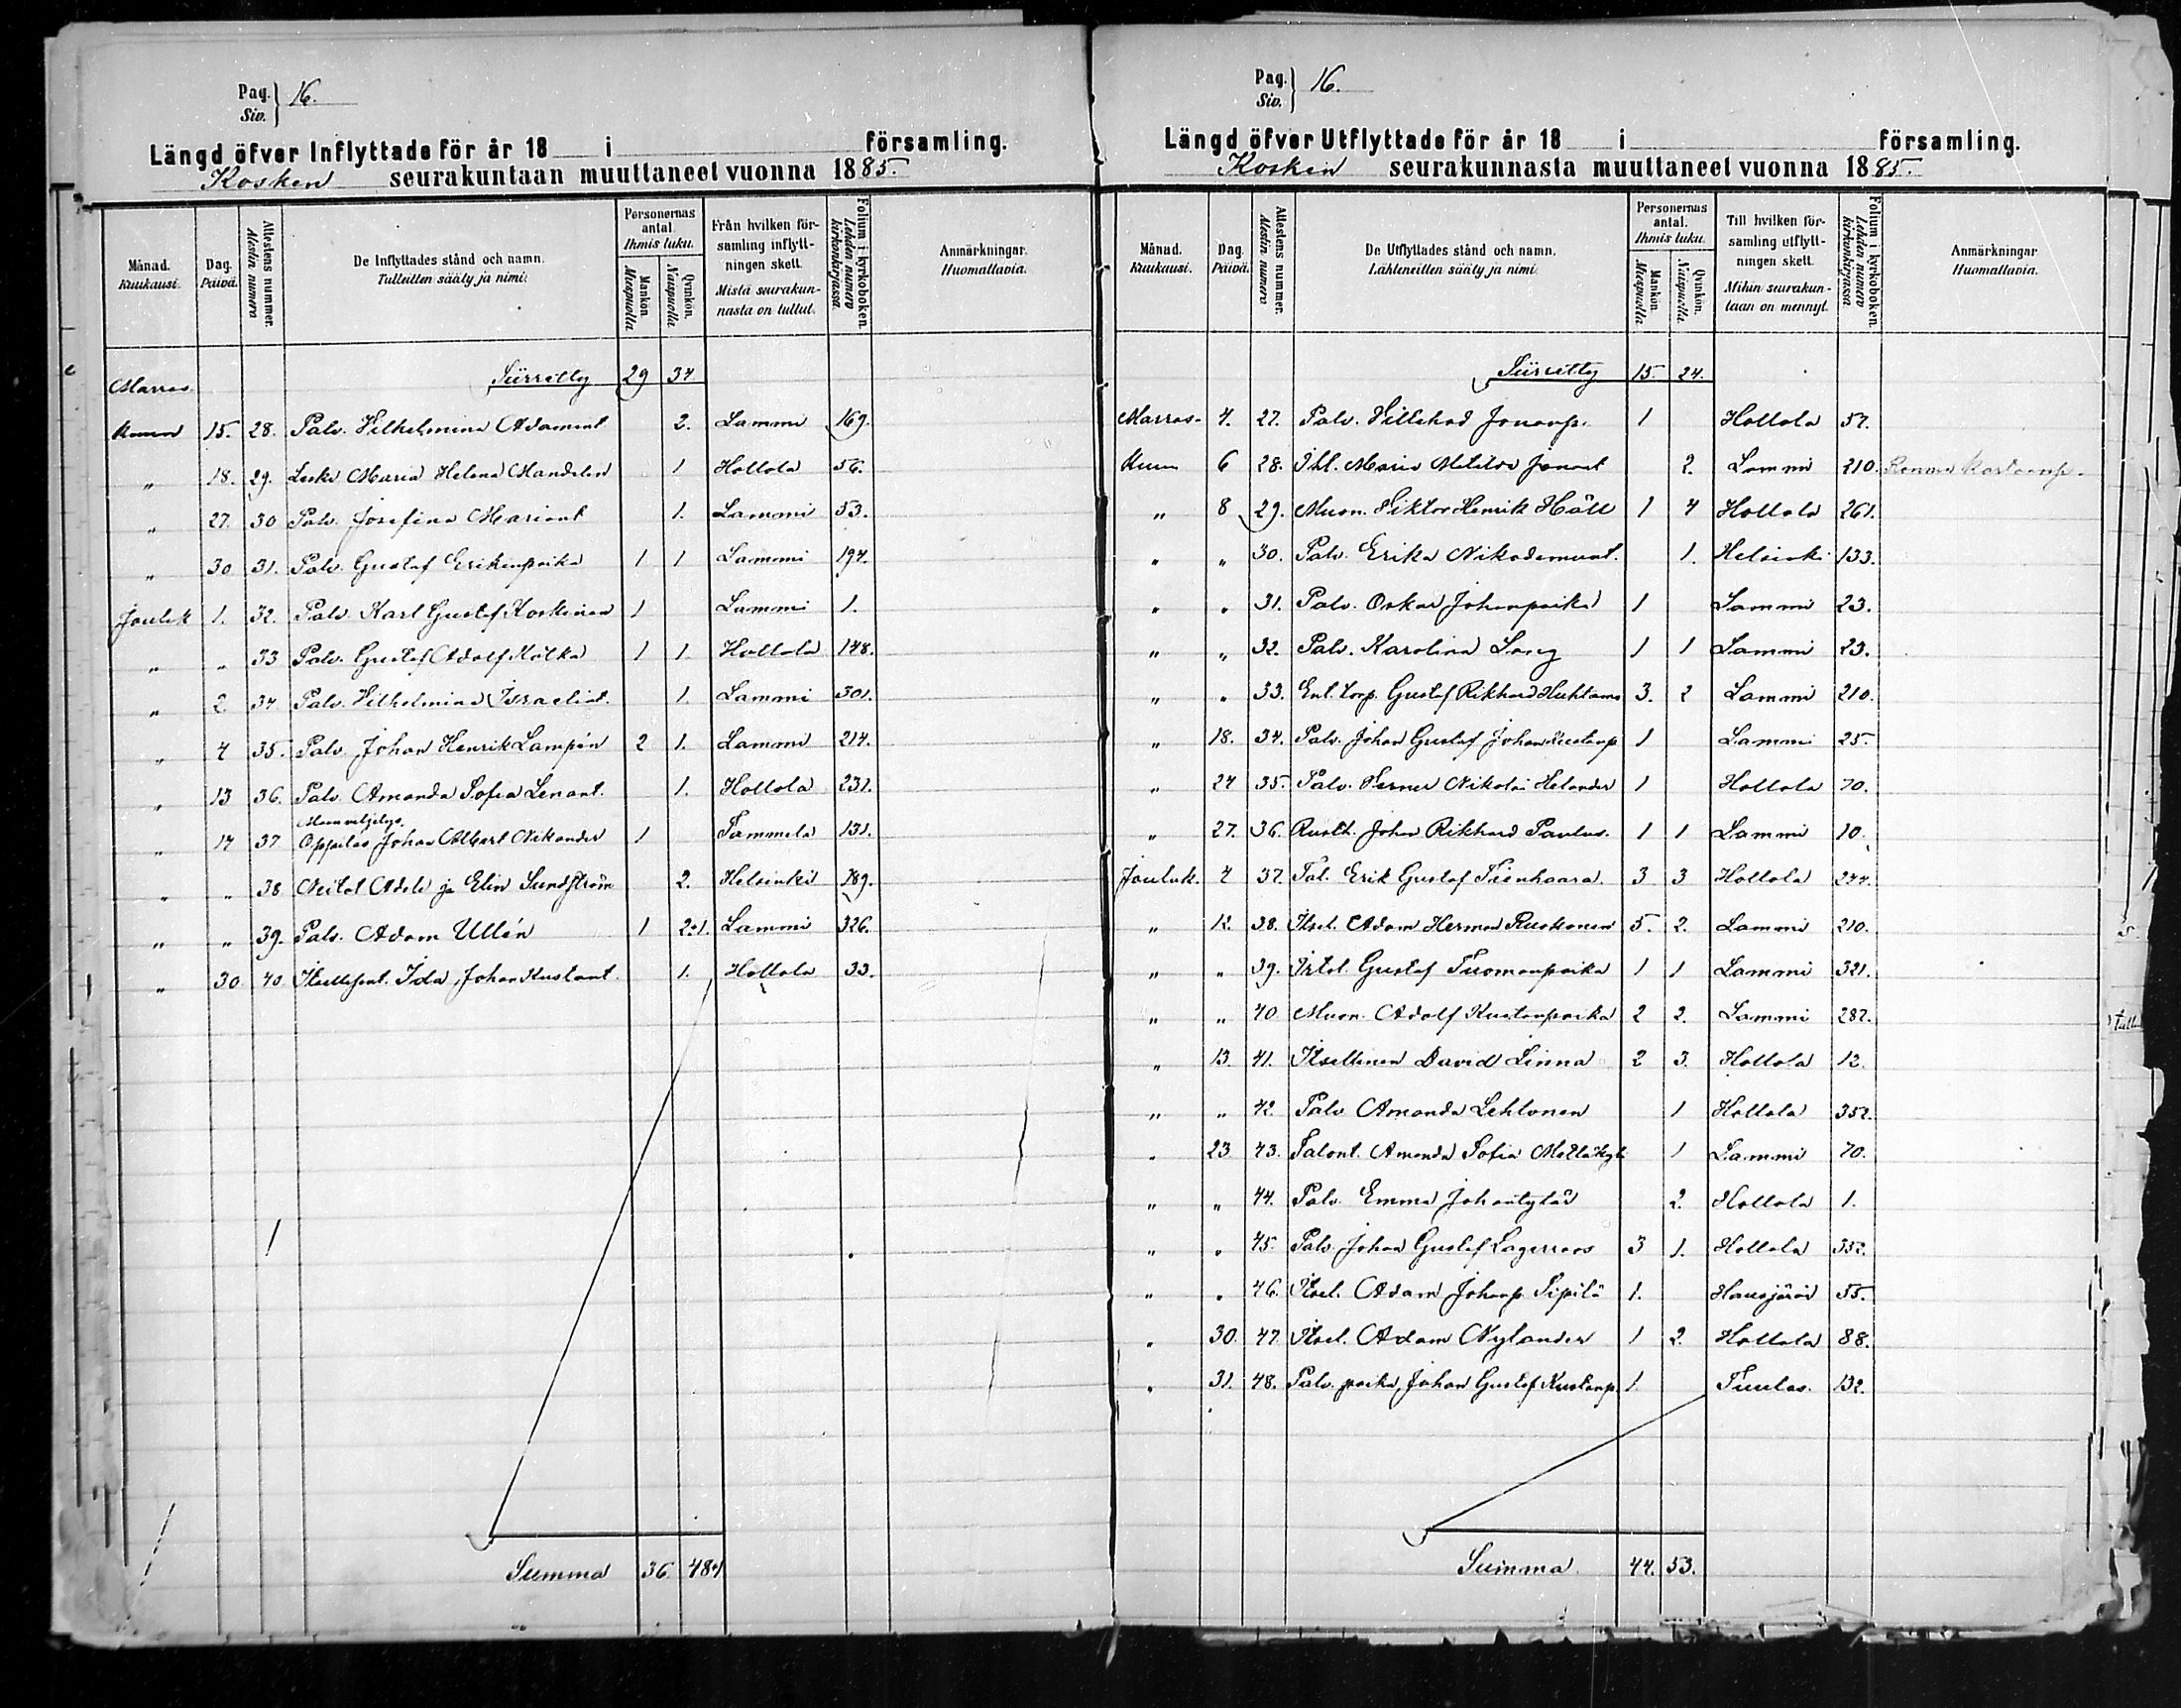 Pag. Siv. } 16.
Längd öfver Inflyttade för år 18 i församling.
Kosken seurakuntaan muuttaneet vuonna 1885.
Månad. Kuukausi. | Dag. Päivä. | Attestens nummer. Alestin numero | De Inflyttades stånd och namn. Tulleitten sääty ja nimi. | Personernas antal. Ihmis luku. Mankön. Miespuolia | Qvinkön. Naispuolia | Från hvilken församling inflyttningen skett. Mistä seurakunnasta on tullut. | Folium i kyrkoboken. Lehden numero kirkonkirjassa | Anmärkningar. Huomattavia.
Siirretty 29 34
Marras
kuun 15. 28. Palv. Vilhelmina Adamint 2. Lammi 169.
" 18. 29. Leski Maria Helena Mandelin 1 Hollola 56.
" 27. 30 Palv. Josefina Mariant 1. Lammi 53.
" 30 31. Palv. Gustaf Erikinpoika 1 1 Lammi 194.
Jouluk 1. 32. Palv. Karl Gustaf Koskinen 1 Lammi 1.
" " 33 Palv. Gustaf Adolf Kölkä 1 1. Hollola 148.
" 2 34 Palv. Vilhelmina Israelint. 1. Lammi 301.
" 4 35. Palv. Johan Henrik Lampén 2 1. Lammi 214.
" 13 36. Palv. Amanda Sofia Lenant. 1. Hollola 231.
Maanviljelys.
" 14 37 Oppilas Johan Albert Nikander 1 Tammela 131.
" " 38 Neitot Adele ja Elin Sundström 2. Helsinki 189.
" " 39. Palv. Adam Ullén 1 2+1. Lammi 326.
" 30 40 Itsellisent. Ida Johan Kustant. 1. Hollola 33.
Summa 36 48+1
Pag. Siv. } 16.
Längd öfver Utflyttade för år 18 i församling.
Kosken seurakunnasta muuttaneet vuonna 1885.
Månad. Kuukausi. | Dag. Päivä. | Attestens nummer. Alestin numero | De Utflyttades stånd och namn. Lähteneitten sääty ja nimi. | Personernas antal. Ihmis luku. Mankön. Miespuolia | Qvinkön. Naispuolia. | Till hvilken församling utflyttningen skett. Mihin seurakuntaan on mennyt. | Folium i kyrkoboken. Lehden numero kirkonkirjassa | Anmärkningar Huomattavia.
Siirretty 15. 24.
Marras- 4. 27. Palv. Villehad Jonanp. 1 Hollola 57.
kuun 6 28. Maria Matilda Jonant 2. Lammi 210.
" 8 29. Muon. Viktor Henrik Häll 1 4 Hollola 261.
" " 30. Palv. Erika Nikodemunt. 1. Helsinki 133.
" " 31. Palv. Oskar Johanpoika 1 Lammi 23.
" " 32. Palv. Karolina Lang 1 1 Lammi 23.
" " 33. Ent. torp. Gustaf Rikhard Huhtamo 3. 2 Lammi 210.
" 18. 34. Palv. Johan Gustaf Johan Kustanp 1 Lammi 25.
" 24 35. Palv. Verner Nikolai Helander 1 Hollola 70.
" 27. 36. Rusth. Johan Rikhard Paulus. 1 1 Lammi 10.
Jouluk. 4 37. Tal. Erik Gustaf Tienhaara. 3 3 Hollola 244.
" 12. 38. Itsel. Adam Herman Ruskonen 5. 2. Lammi 210.
" " 39. Gustaf Tuomanpoika 1 1 Lammi 321.
" " 40 Muon. Adolf Kustanpoika 2 2. Lammi 287.
" 13. 41. Itsellinen David Linna 2 3. Hollola 12.
" " 42. Palv Amanda Lehtonen 1 Hollola 357.
" 23. 43. Talont. Amanda Sofia Mettäkylä 1 Lammi 70.
" " 44. Palv. Emma Johantytär 2. Hollola 1.
" " 45. Palv. Johan Gustaf Lagerroos 3 1. Hollola 357.
" " 46. Itsel. Adam Johanp. Sipilä 1. Hausjärvi 55.
" 30. 47. Itsel. Adam Nylander 1 2. Hollola 88.
" 31. 48. Palv. poika Johan Gustaf Kustanp. 1. Tuulos. 132.
Summa. 44. 53.